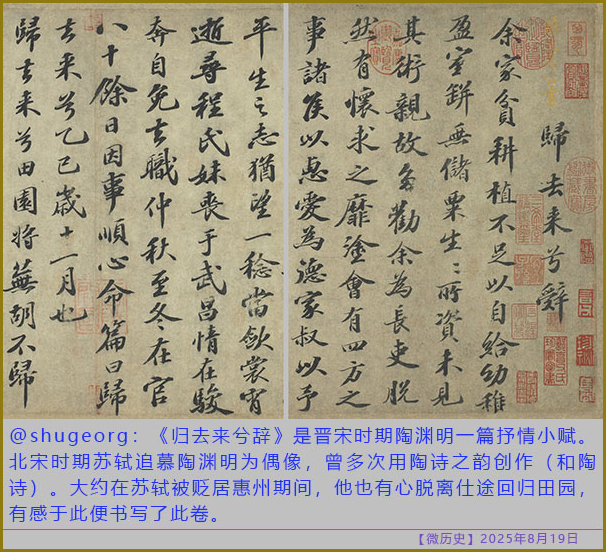 歸去来兮辭
余家貧耕植不足以自給幼稚
盈室缾無儲粟生〻所資未見
其術親故多勸余為長吏脱
然有懷求之靡塗會有四方之
事諸侯以惠愛為德家叔以予
平生之志猶望一稔當斂裳宵
逝尋程氏妹喪于武昌情在駿
奔自免去職仲秋至冬在官
八十餘日因事順心命篇曰歸
去来兮乙巳歲十一月也
歸去来兮田園將蕪胡不歸
@shugeorg：《归去来兮辞》是晋宋时期陶渊明一篇抒情小赋。
北宋时期苏轼追慕陶渊明为偶像，曾多次用陶诗之韵创作（和陶
诗）。大约在苏轼被贬居惠州期间，他也有心脱离仕途回归田园，
有感于此便书写了此卷。
【微历史】2025年8月19日